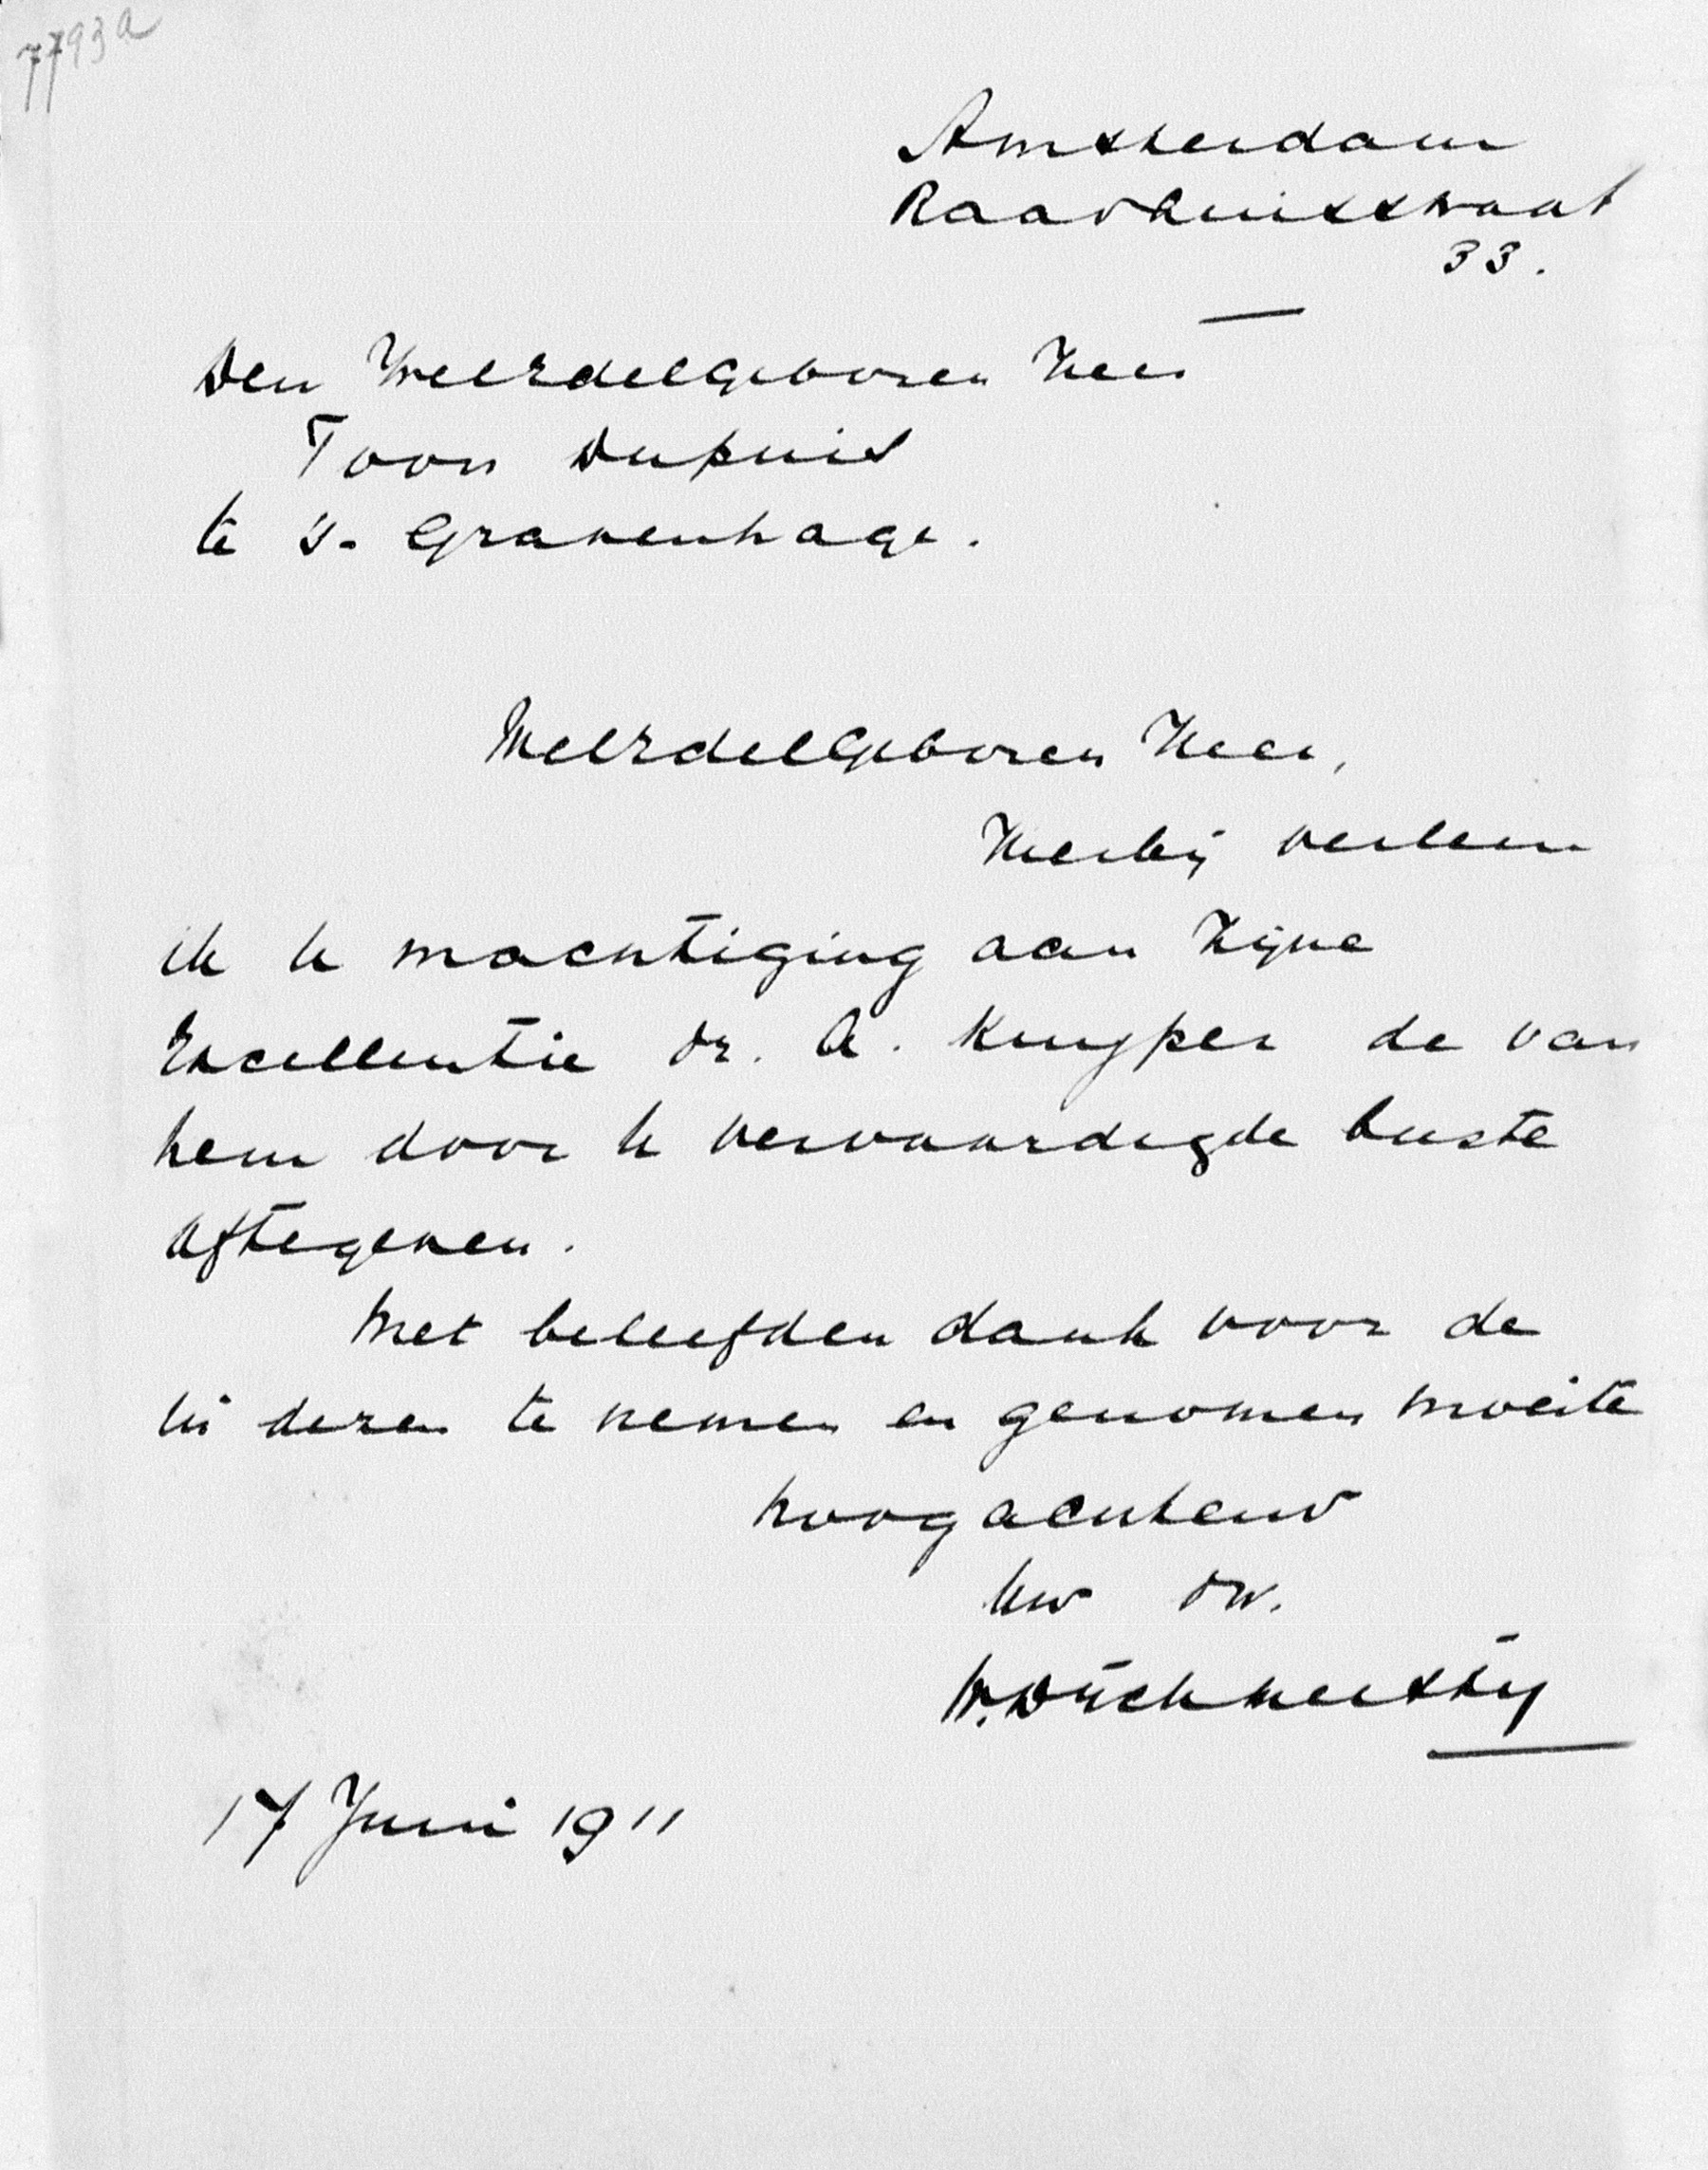 7793a
Amsterdam
Raadhuisstraat
33.
Den WelEdelGeboren Heer
Toon Dupuis
te 's-Gravenhage.
WelEdelGeboren Heer,
Hierbij verleen
ik U machtiging aan Zijne
Excellentie Dr. A. Kuyper de van
hem door U vervaardigde buste
aftegeven.
Met beleefden dank voor de
in dezen te nemen en genomen moeite
hoogachtend
Uw Dw.
17 Juni 1911